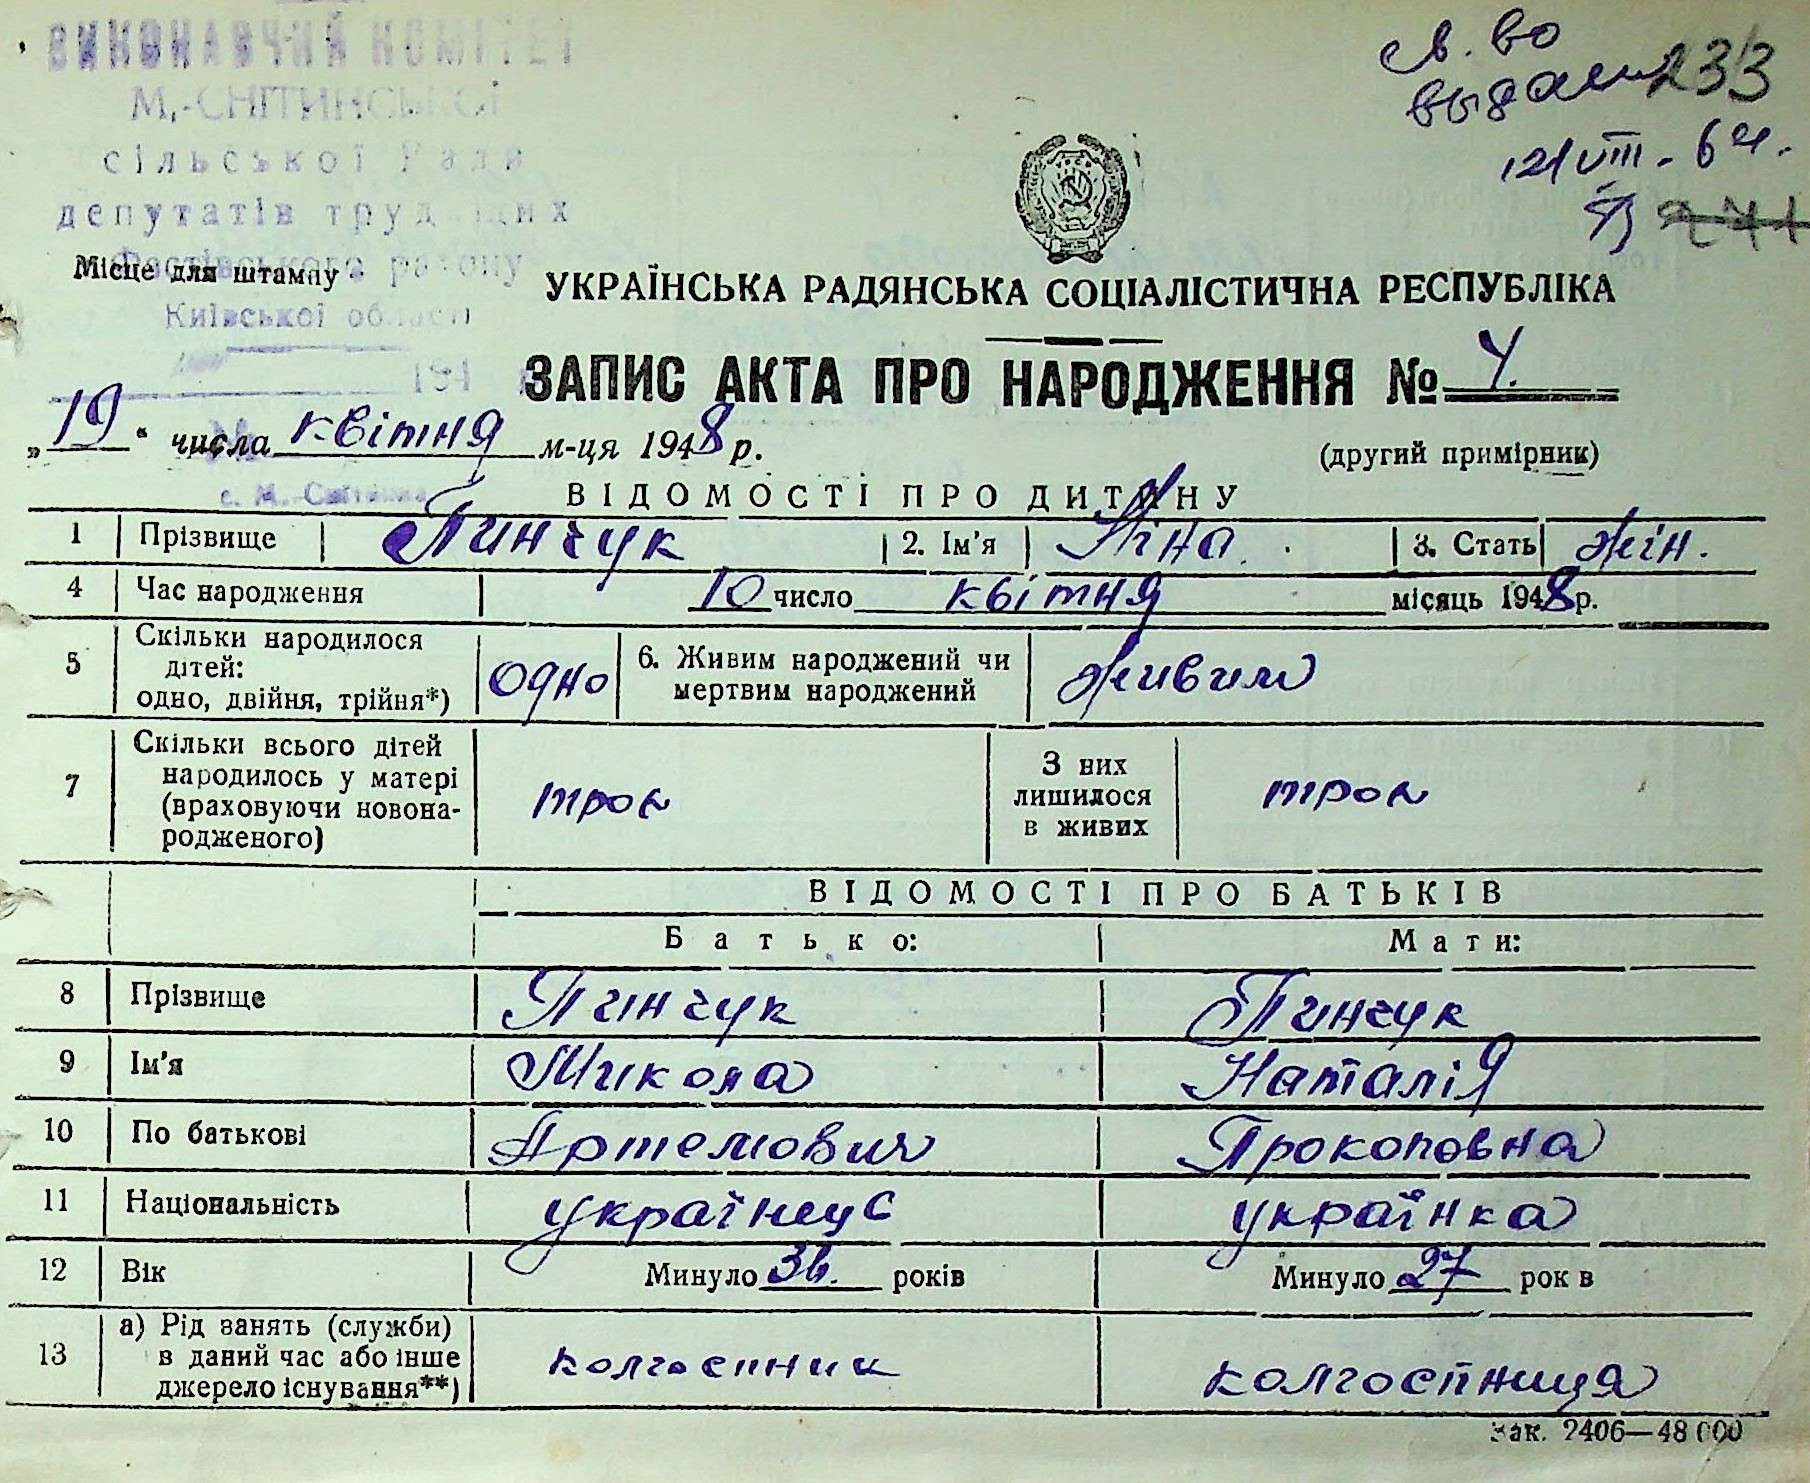 ВИКОНАВЧИЙ КОМІТЕТ
М.-СНІТИНСЬКОЇ
сільської Ради
депутатів трудящих
Фастівського району
Київської області
194
с. М.-Снітинка
св. во
выдан 233
121 VIII - 64.
271
Місце для штампу
УКРАЇНСЬКА РАДЯНСЬКА СОЦІАЛІСТИЧНА РЕСПУБЛІКА
ЗАПИС АКТА ПРО НАРОДЖЕННЯ № 4.
„19“ числа квітня м-ця 1948 р.
(другий примірник)
ВІДОМОСТІ ПРО ДИТИНУ
1 Прізвище Пинчук 2. Ім'я Ніна. 3. Стать жін.
4 Час народження 10 число квітня місяць 1948 р.
5 Скільки народилося дітей: одно, двійня, трійня*) одно 6. Живим народжений чи мертвим народжений живим
7 Скільки всього дітей народилось у матері (враховуючи новонародженого) троє З них лишилося в живих троє
ВІДОМОСТІ ПРО БАТЬКІВ
Батько: Мати:
8 Прізвище Пинчук Пинчук
9 Ім'я Микола Наталія
10 По батькові Артемович Прокоповна
11 Національність українець українка
12 Вік Минуло 36. років Минуло 27 рок в
13 а) Рід занять (служби) в даний час або інше джерело існування**) колгоспник колгоспниця
Зак. 2406—48 000